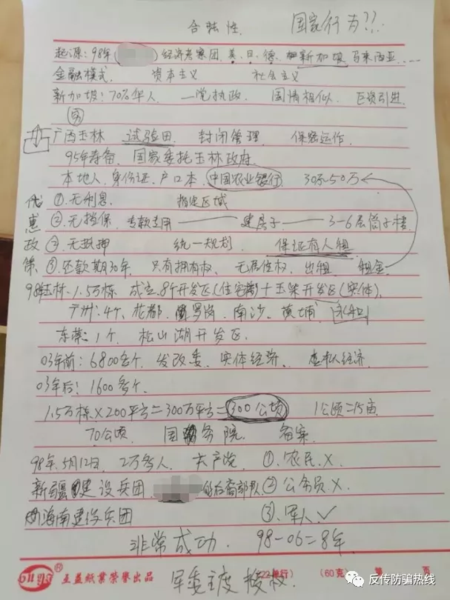 合法性 国家行为??
起源:98年 经济考察团 美、日、德、新加坡 马来西亚...
金融模式 资本主义 社会主义
新加坡:70%华人 一党执政 国情相似 区资引进
广西玉林 试验田 封闭管理 保密运作
95年筹备 国家委托玉林政府
本地人、身份证、户口本 中国农业银行 30万-50万
优惠政策
①无利息 指定区域
②无担保 专款专用 —— 建房子 —— 3-6层筒子楼
③无抵押 统一规划 保证有人租
④还款期30年 只有拥有权 无居住权 出租 租金
98玉林:1.5万栋 成立8个开发区(住宅)+玉柴开发区(实体)
广州:4个 花都 萝岗 南沙 黄埔
东莞:1个 松山湖开发区
03年前:6800多个 发改委 实体经济 虚拟经济
03年后:1600多个
1.5万栋×200平方=300万平方=300公顷 1公顷=15亩
70公顷 国务院 备案
98年.5月12日 2万多人 共产党 ①.农民.X
新疆建设兵团 的后裔部队 ②公务员X
海南建设兵团 ③军人✓
非常成功 98-06=8年
玉益纸业荣誉出品 (60克) 第 页
军委主席授权
反传防骗热线